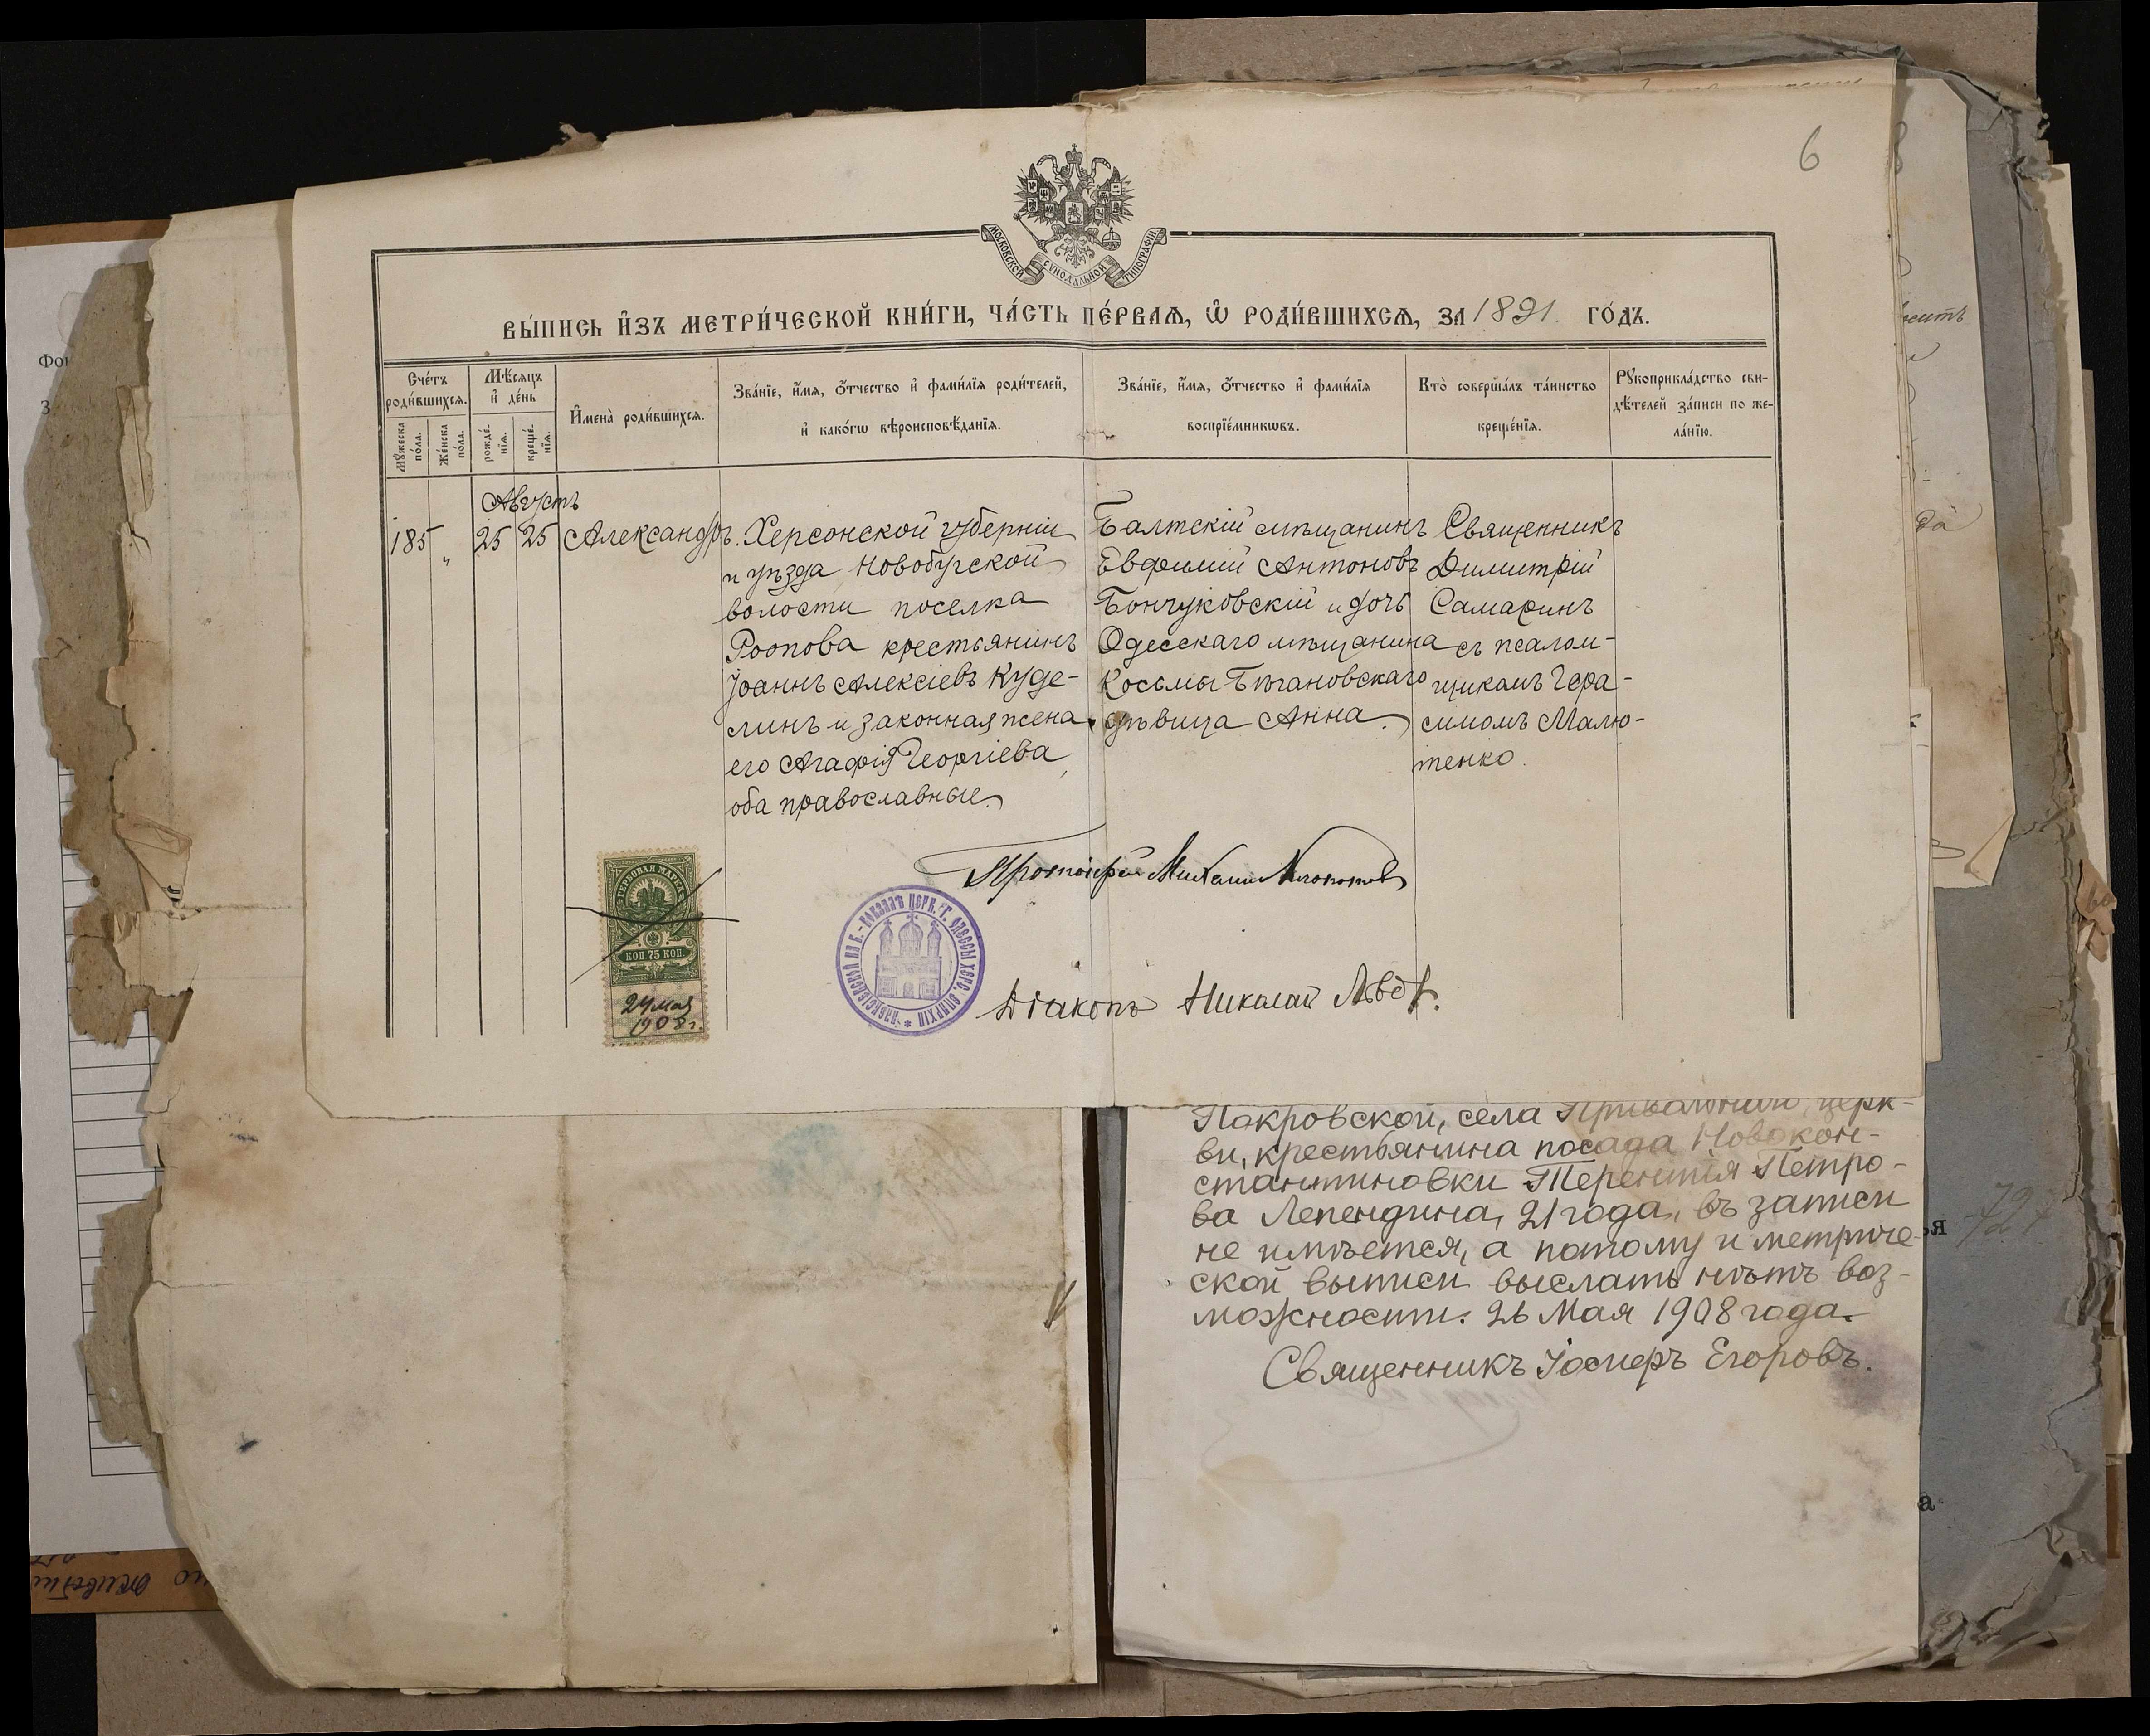 6
МОСКОВСКОЙ СѴНОДАЛЬНОЙ ТИПОГРАФІИ
ВЫ́ПИСЬ И҆ЗЪ МЕТРИ́ЧЕСКОЙ КНИ́ГИ, ЧА́СТЬ ПЕ́РВАѦ, Ѡ҆ РОДИ́ВШИХСѦ, ЗА 1891 ГО́ДЪ.
Сче́тъ роди́вшихсѧ.
Мꙋ́жеска по́ла.
Же́нска по́ла.
Мѣ́сѧцъ и҆ де́нь
рожде́нїѧ.
креще́нїѧ.
И҆мена̀ роди́вшихсѧ.
Зва́нїе, и҆́мѧ, ѻ҆́тчество и҆ фами́лїѧ роди́телей,
и҆ како́гѡ вѣроисповѣ́данїѧ.
Зва́нїе, и҆́мѧ, ѻ҆́тчество и҆ фами́лїѧ
воспрїе́мникѡвъ.
Кто̀ соверша́лъ та́инство
креще́нїѧ.
Рꙋкоприкла́дство сви-
дѣ́телей за́писи по же-
ла́нїю.
Августъ
185
"
25
25
Александръ.
Херсонской губерніи
и уѣзда Новобугской
волости поселка
Роопова крестьянинъ
Іоаннъ Алексіевъ Куде-
линъ и законная жена
его Агафія Георгіева,
оба православные.
Балтскій мѣщанинъ
Евфимій Антоновъ
Бончуковскій и дочь
Одесскаго мѣщанина
Косьмы Бѣгановскаго
дѣвица Анна.
Священникъ
Димитрій
Самаринъ
съ псалом-
щикомъ Гера-
симомъ Малю-
тенко.
Протоіерей Михаилъ
ГЕРБОВАЯ МАРКА
КОП. 75 КОП.
24 мая
1908 г.
ЦЕРК. Г. ОДЕССЫ ХЕРС. ЕПАРХІИ
Діаконъ Николай Львовъ.
Покровской, села церк-
ви, крестьянина посада Новокон-
стантиновки Терентія Петро-
ва Лепендина, 21 года, въ записи
не имѣется, а потому и метриче-
ской выписи выслать нѣтъ воз-
можности. 26 Мая 1908 года.
Священникъ Іосифъ Егоровъ.
Фон
З
да
727
я
а